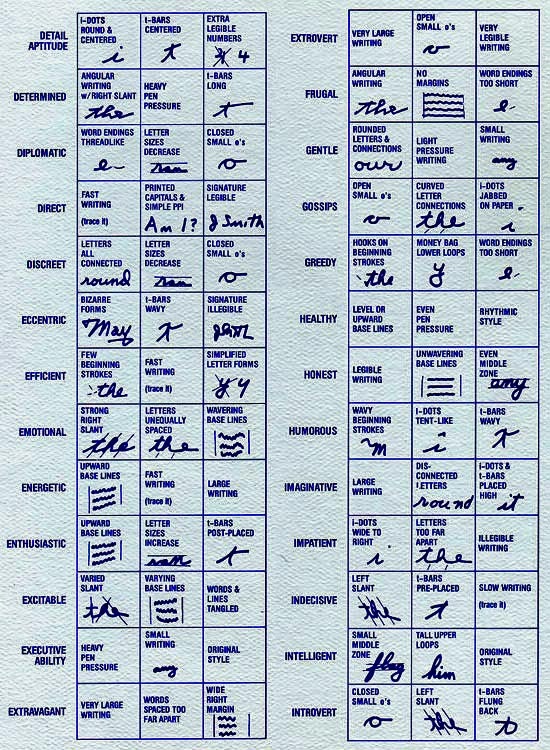 DETAIL
APTITUDE
i-DOTS
ROUND &
CENTERED
i
t-BARS
CENTERED
t
EXTRA
LEGIBLE
NUMBERS
4 4
DETERMINED
ANGULAR
WRITING
w/RIGHT SLANT
the
HEAVY
PEN
PRESSURE
t-BARS
LONG
t
DIPLOMATIC
WORD ENDINGS
THREADLIKE
e
LETTER
SIZES
DECREASE
CLOSED
SMALL o's
o
DIRECT
FAST
WRITING
(trace it)
PRINTED
CAPITALS &
SIMPLE PPI
Am I?
SIGNATURE
LEGIBLE
J Smith
DISCREET
LETTERS
ALL
CONNECTED
round
LETTER
SIZES
DECREASE
CLOSED
SMALL o's
o
ECCENTRIC
BIZARRE
FORMS
May
t-BARS
WAVY
t
SIGNATURE
ILLEGIBLE
EFFICIENT
FEW
BEGINNING
STROKES
the
FAST
WRITING
(trace it)
SIMPLIFIED
LETTER FORMS
y y
EMOTIONAL
STRONG
RIGHT
SLANT
the
LETTERS
UNEQUALLY
SPACED
the
WAVERING
BASE LINES
ENERGETIC
UPWARD
BASE LINES
FAST
WRITING
(trace it)
LARGE
WRITING
ENTHUSIASTIC
UPWARD
BASE LINES
LETTER
SIZES
INCREASE
t-BARS
POST-PLACED
t
EXCITABLE
VARIED
SLANT
the
VARYING
BASE LINES
WORDS &
LINES
TANGLED
EXECUTIVE
ABILITY
HEAVY
PEN
PRESSURE
SMALL
WRITING
any
ORIGINAL
STYLE
EXTRAVAGANT
VERY LARGE
WRITING
WORDS
SPACED TOO
FAR APART
WIDE
RIGHT
MARGIN
EXTROVERT
VERY LARGE
WRITING
OPEN
SMALL o's
o
VERY
LEGIBLE
WRITING
FRUGAL
ANGULAR
WRITING
the
NO
MARGINS
WORD ENDINGS
TOO SHORT
e
GENTLE
ROUNDED
LETTERS &
CONNECTIONS
our
LIGHT
PRESSURE
WRITING
SMALL
WRITING
any
GOSSIPS
OPEN
SMALL o's
o
CURVED
LETTER
CONNECTIONS
the
i-DOTS
JABBED
ON PAPER
i
GREEDY
HOOKS ON
BEGINNING
STROKES
the
MONEY BAG
LOWER LOOPS
y
WORD ENDINGS
TOO SHORT
e
HEALTHY
LEVEL OR
UPWARD
BASE LINES
EVEN
PEN
PRESSURE
RHYTHMIC
STYLE
HONEST
LEGIBLE
WRITING
UNWAVERING
BASE LINES
EVEN
MIDDLE
ZONE
any
HUMOROUS
WAVY
BEGINNING
STROKES
m
i-DOTS
TENT-LIKE
i
t-BARS
WAVY
t
IMAGINATIVE
LARGE
WRITING
DIS-
CONNECTED
LETTERS
round
i-DOTS &
t-BARS
PLACED
HIGH
it
IMPATIENT
i-DOTS
WIDE TO
RIGHT
i
LETTERS
TOO FAR
APART
the
ILLEGIBLE
WRITING
INDECISIVE
LEFT
SLANT
the
t-BARS
PRE-PLACED
t
SLOW WRITING
(trace it)
INTELLIGENT
SMALL
MIDDLE
ZONE
flag
TALL UPPER
LOOPS
him
ORIGINAL
STYLE
INTROVERT
CLOSED
SMALL o's
o
LEFT
SLANT
the
t-BARS
FLUNG
BACK
t